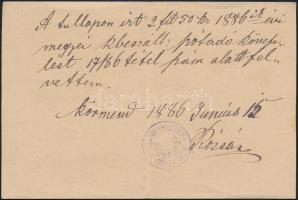 A tullapon irt 2 frt 50 kr 1886 ik évi
megyei kbeszált. pótadó követe-
lést 17/86 tétel szám alatt fel-
vettem.
Körmend 1886 Junius 15
Rózsás